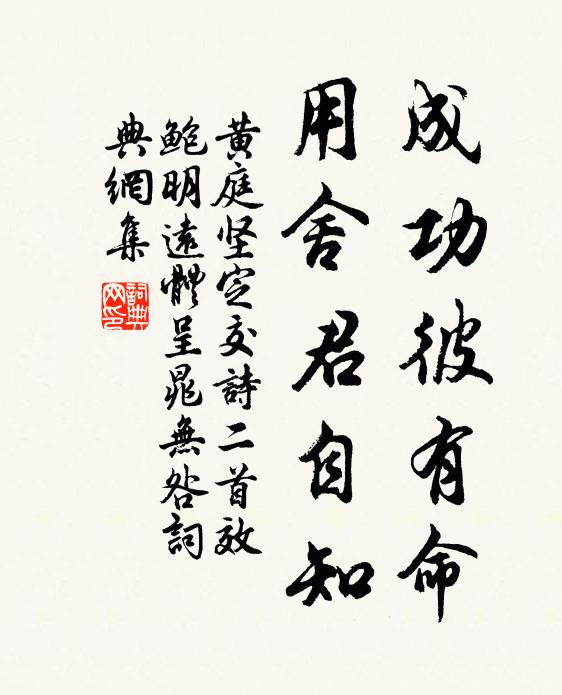 成功彼有命
用舍君自知
黄庭坚定交詩二首效
鲍明遠體呈晁無咎詞
典網集
詞典網印